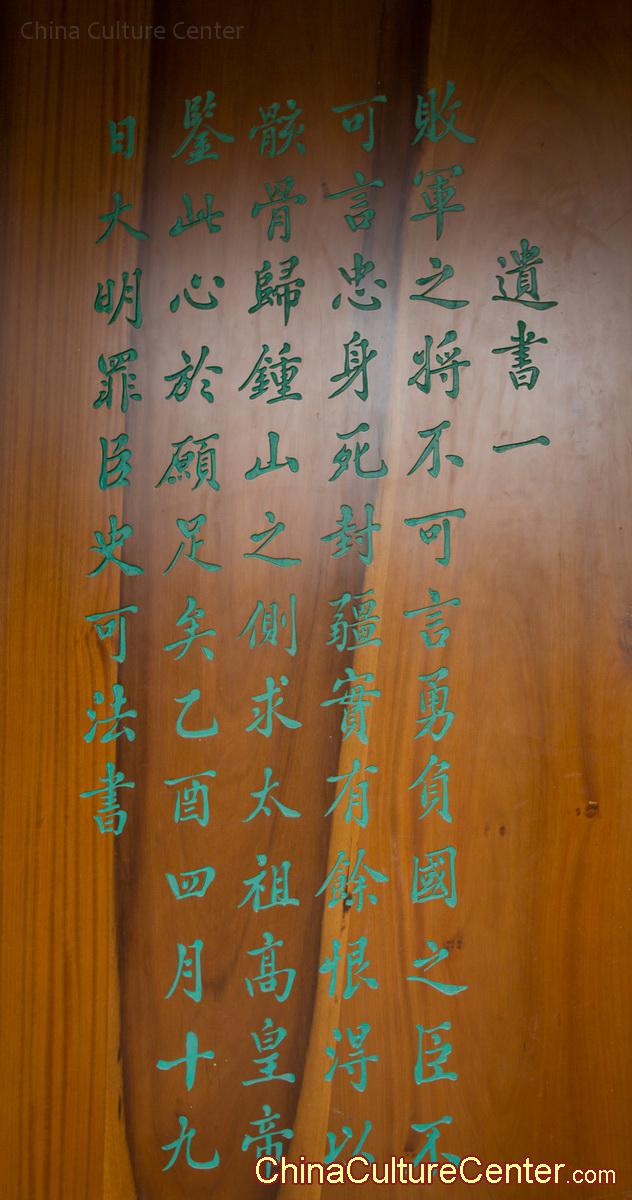 China Culture Center
遺書一
敗軍之将不可言勇負國之臣不
可言忠身死封疆實有餘恨淂以
骸骨歸鍾山之側求太祖高皇帝
鑒此心於願足矣乙酉四月十九
日大明罪臣史可法書
ChinaCultureCenter.com